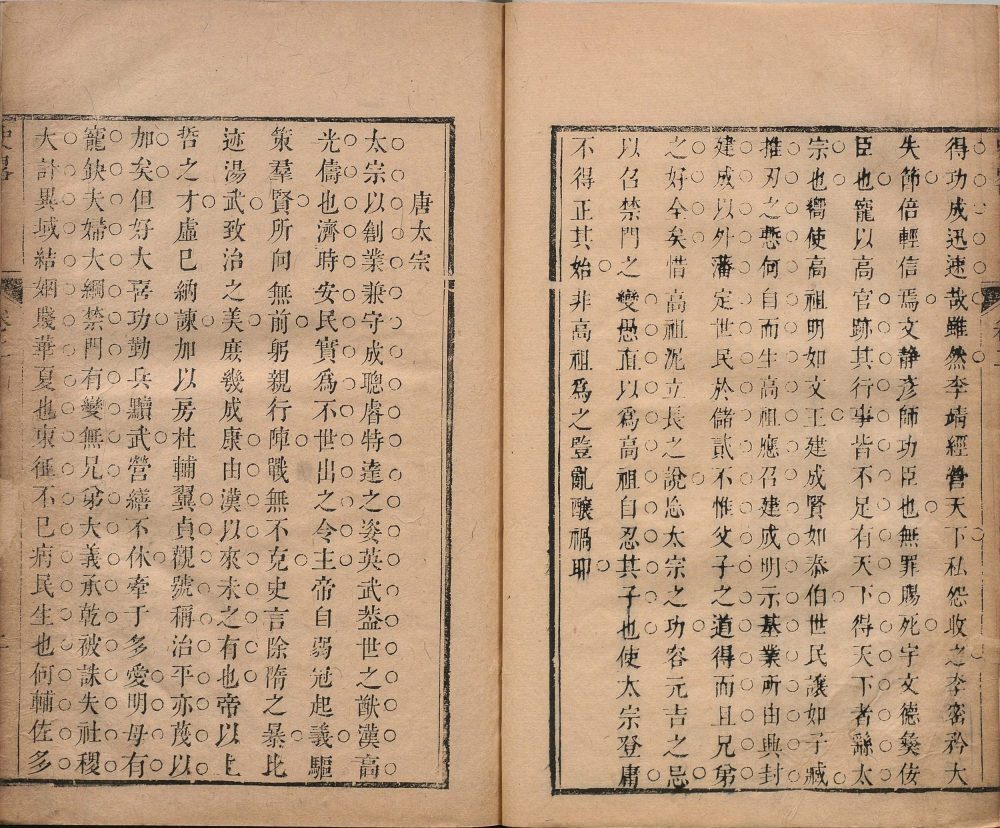 得功成迅速哉雖然李靖經營天下私怨收之李密矜大
失節倍輕信焉文靜彥師功臣也無罪賜死宇文德彝佞
臣也寵以高官跡其行事皆不足有天下得天下者繇太
宗也嚮使高祖明如文王建成賢如泰伯世民讓如子臧
推刃之慼何自而生高祖應召建成明示基業所由興封
建成以外藩定世民於儲貳不惟父子之道得而且兄弟
之好全矣惜高祖泥立長之說忘太宗之功容元吉之忌
以召禁門之變愚直以爲高祖自忍其子也使太宗登庸
不得正其始非高祖爲之曁亂釀禍耶
唐太宗
太宗以創業兼守成聰睿特達之姿英武蓋世之猷漢高
光儔也濟時安民實爲不世出之令主帝自弱冠起義驅
策羣賢所向無前躬親行陣戰無不克史言除隋之暴比
迹湯武致治之美庶幾成康由漢以來未之有也帝以上
哲之才虛己納諫加以房杜輔翼貞觀號稱治平亦蔑以
加矣但好大喜功勤兵黷武營繕不休牽于多愛明母有
寵鈌夫婦大綱禁門有變無兄弟大義承乾被誅失社稷
大計異域結姻賤華夏也東征不已病民生也何輔佐多
史畧
卷二